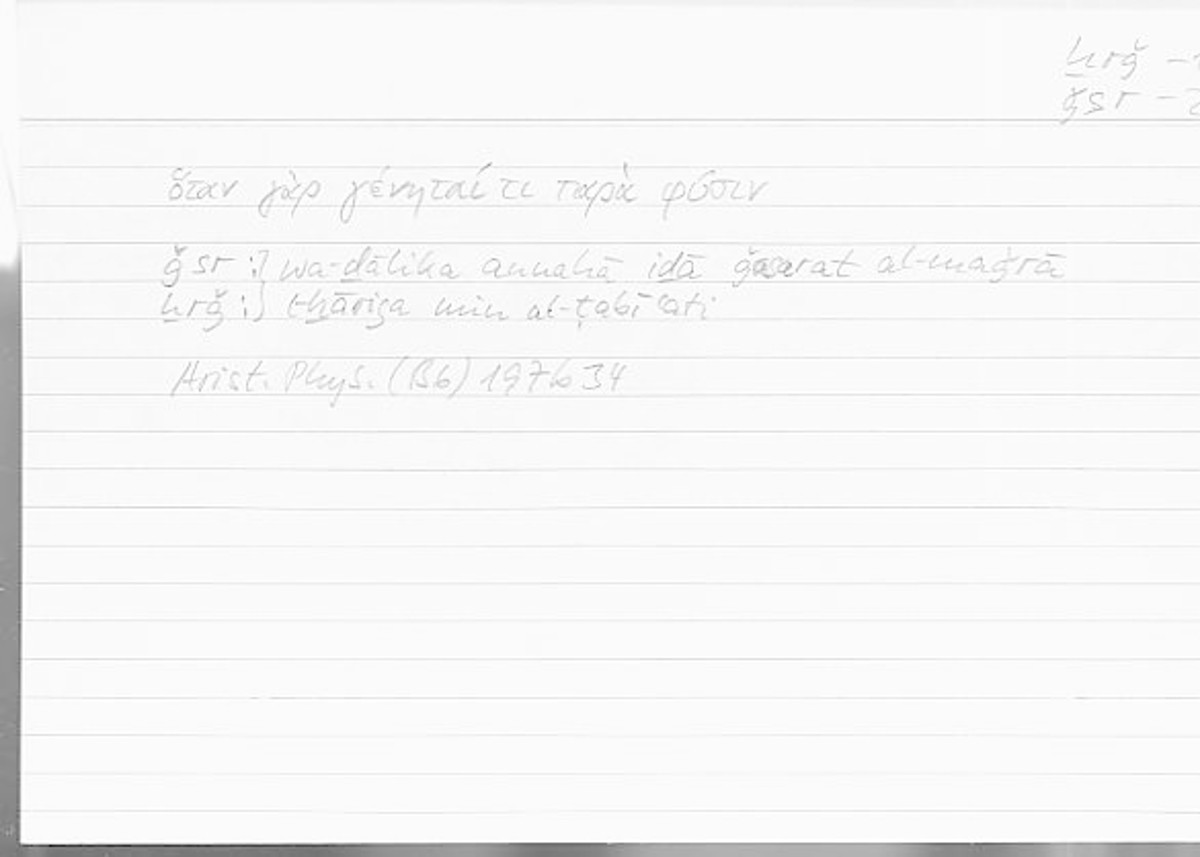 ḫrǧ –
ǧsr –
ὅταν γὰρ γένηταί τι παρὰ φύσιν
ǧsr :] wa-ḏālika annahā iḏā ǧasarat al-maǧrā
ḫrǧ :] ḫāriǧa min al-ṭabīʿati
Arist. Phys. (B6) 197b34